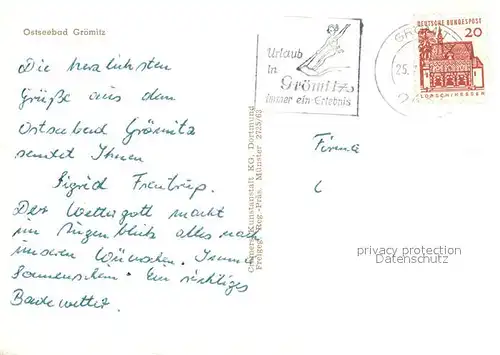 Ostseebad Grömitz
Die herzlichsten
Grüße aus dem
Ostseebad Grömitz
sendet Ihnen
Sigrid
Der Wettergott macht
im Augenblick alles nach
unseren Wünschen. Immer
Sonnenschein. Ein richtiges
Badewetter.
Cramers Kunstanstalt KG, Dortmund
Freigeg. Reg.-Präs. Münster 2725/63
Urlaub
in
Grömitz
immer ein Erlebnis
25.
DEUTSCHE BUNDESPOST
20
LORSCH/HESSEN
Firma
privacy protection
Datenschutz